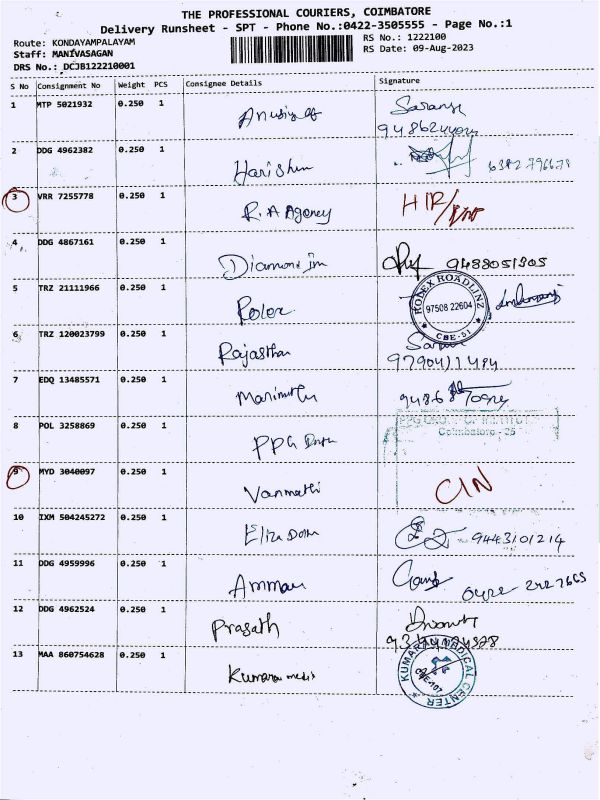 THE PROFESSIONAL COURIERS, COIMBATORE
Delivery Runsheet - SPT - Phone No.:0422-3505555 - Page No.:1
Route: KONDAYAMPALAYAM
RS No.: 1222100
Staff: MANIVASAGAN
RS Date: 09-Aug-2023
DRS No.: DCJB122210001
S No Consignment No Weight PCS Consignee Details Signature
1 MTP 5021932 0.250 1
2 DDG 4962382 0.250 1
3 VRR 7255778 0.250 1 R.A Agency
4 DDG 4867161 0.250 1 Diamond 9488051305
5 TRZ 21111966 0.250 1 Rolex
ROLEX ROADLINZ
97508 22604
CBE-51
6 TRZ 120023799 0.250 1 Rajasthan
7 EDQ 13485571 0.250 1
8 POL 3258869 0.250 1 PPG
Coimbatore - 35
9 MYD 3040097 0.250 1 Vanmathi CIN
10 IXM 504245272 0.250 1 9443101214
11 DDG 4959996 0.250 1 Amman
12 DDG 4962524 0.250 1 Prasath
13 MAA 860754628 0.250 1 Kumaran medi
KUMARAN MEDICAL CENTER
CBE-107